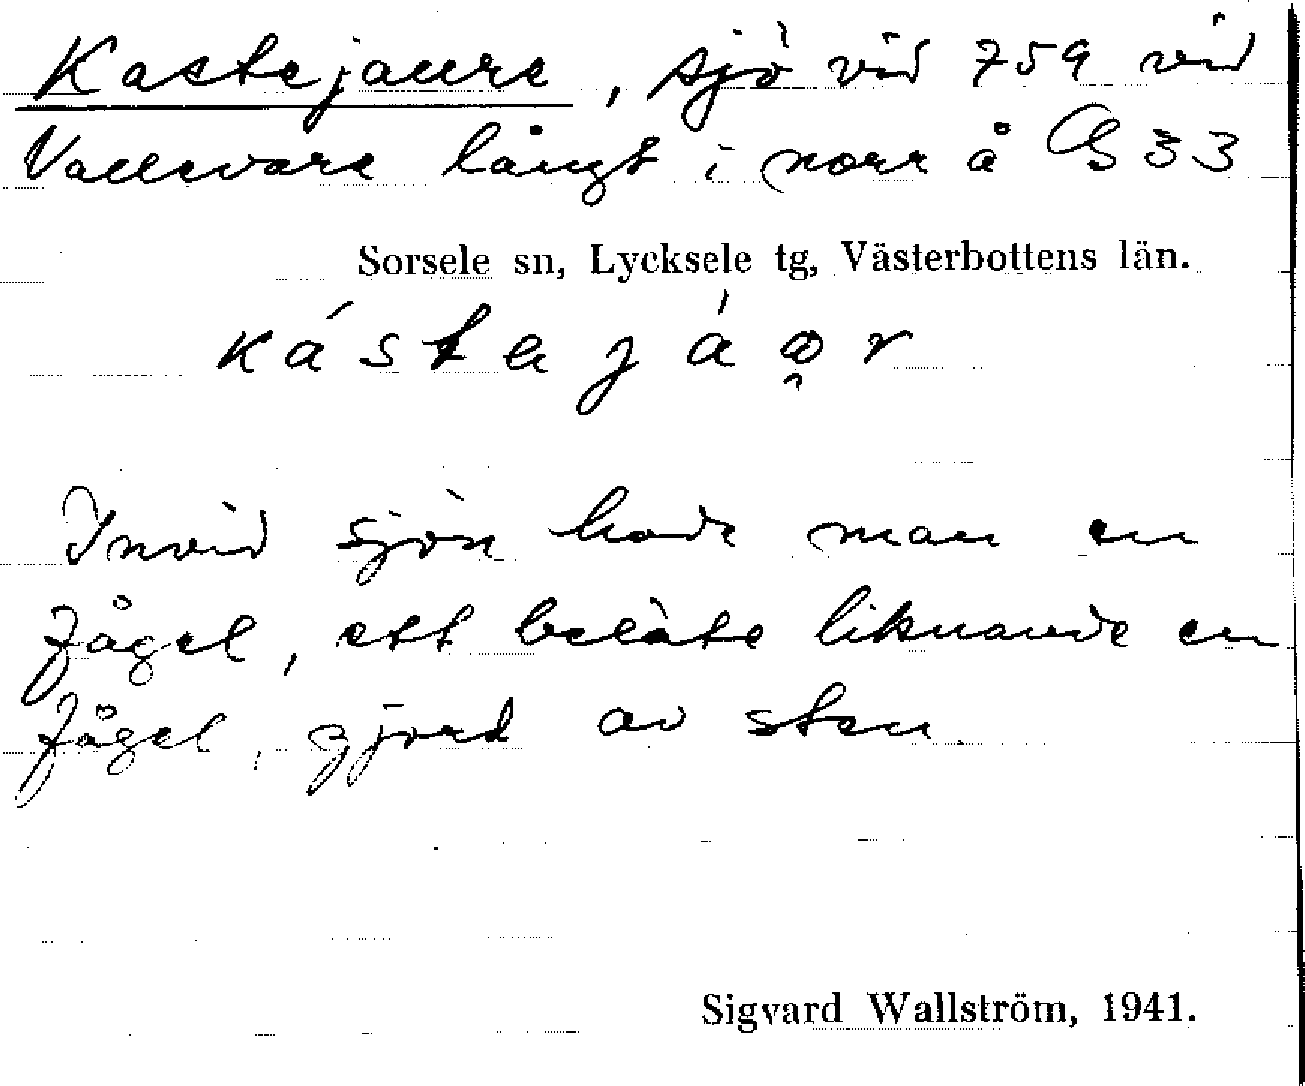 Kastejaure, sjö vid 759 vid
Vallevare långt i norr å G 33
Sorsele sn, Lycksele tg, Västerbottens län.
Invid sjön hade man en
fågel, ett beläte liknande en
fågel, gjord av sten
Sigvard Wallström, 1941.